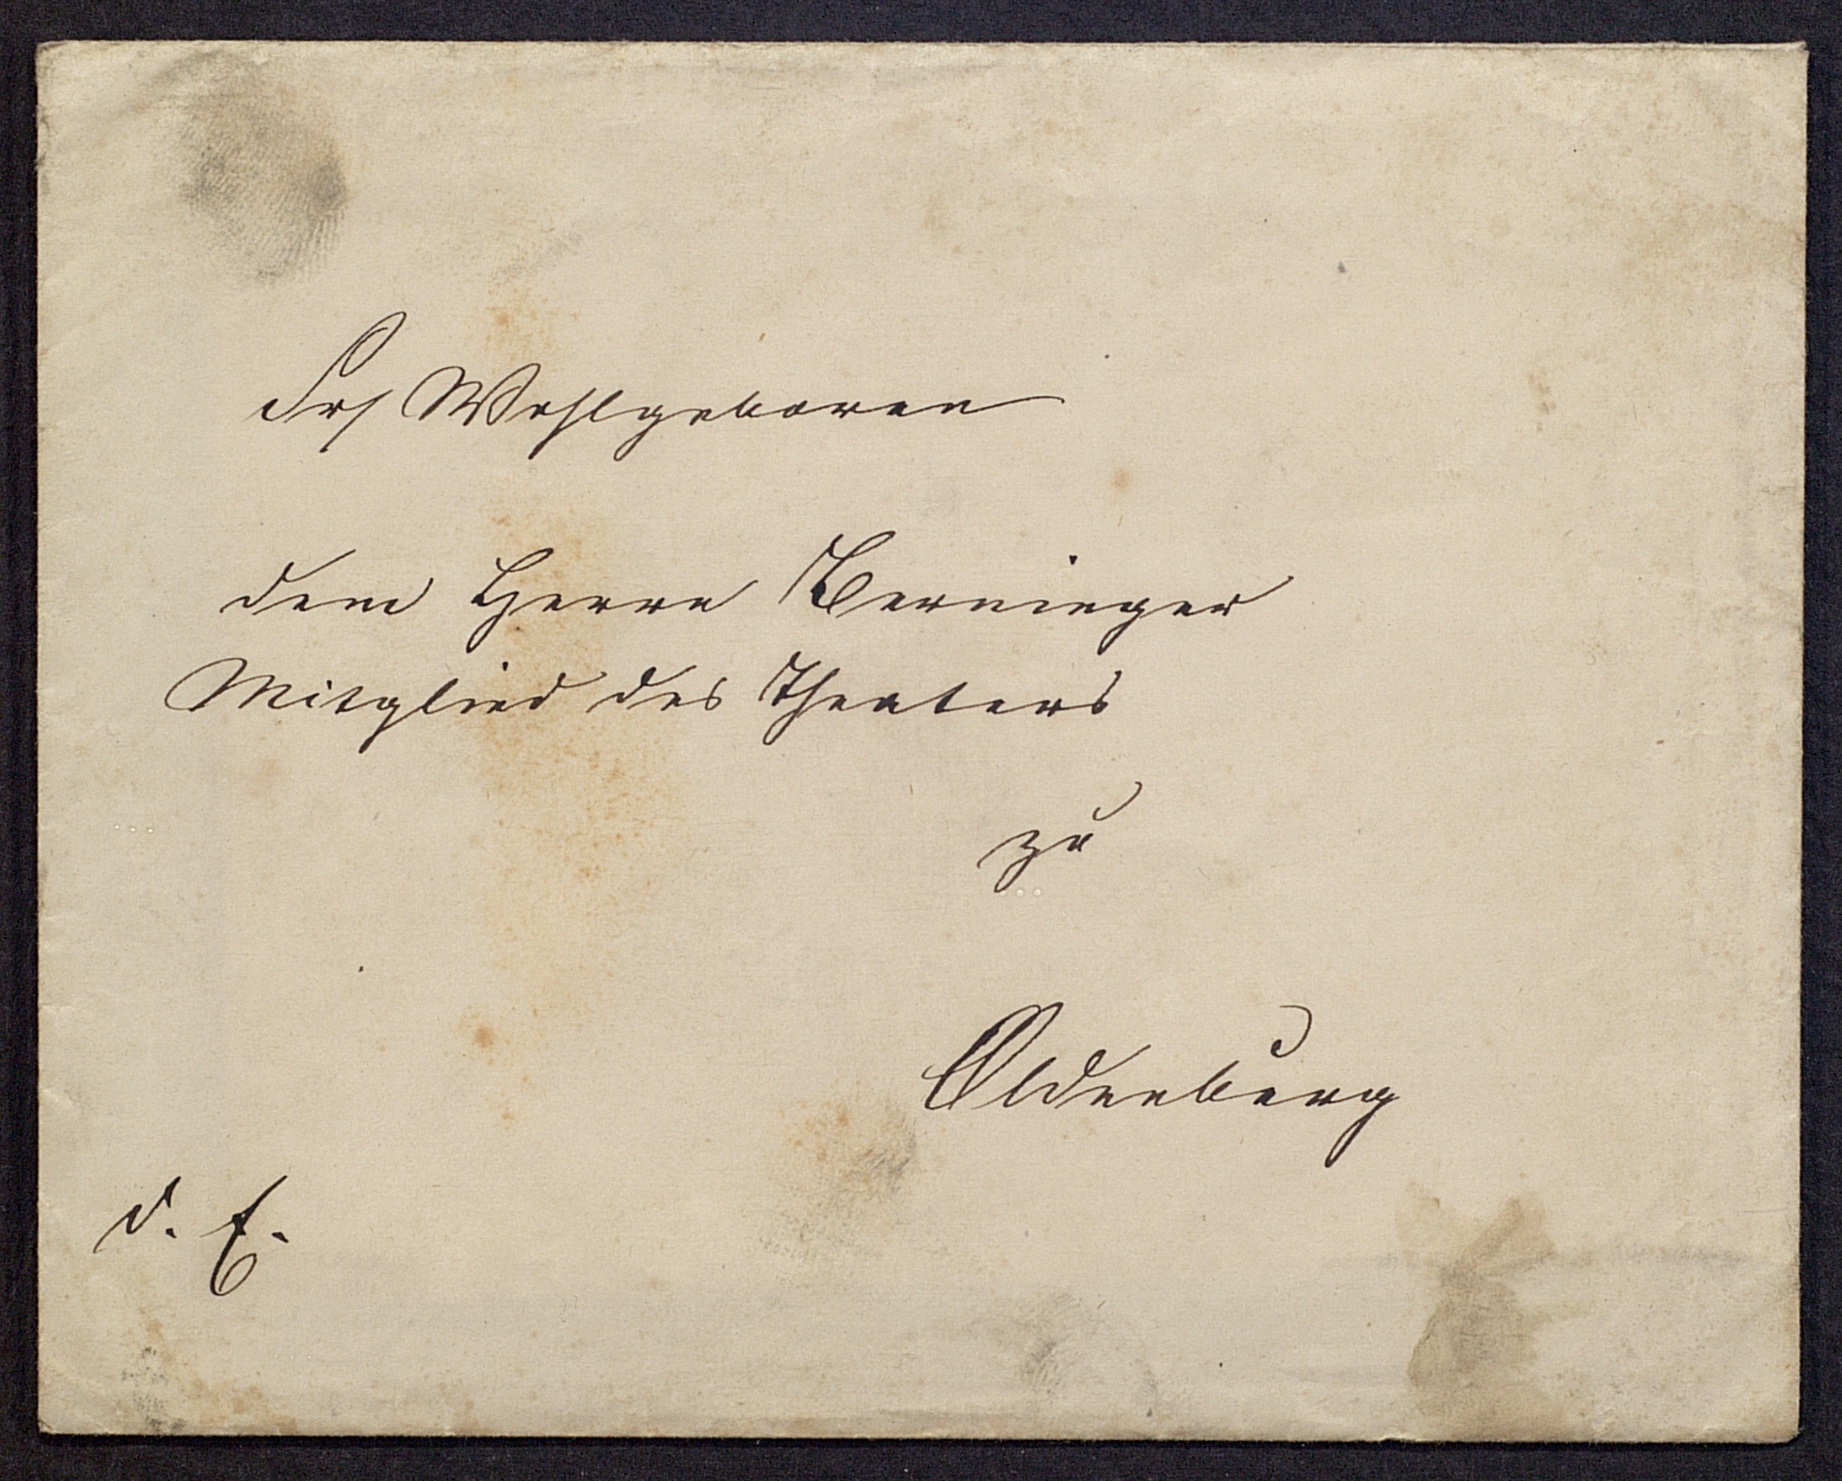 Sr Wohlgeboren
dem Herrn Berninger
Mitglied des Theaters
zu
Oldenburg
d. E.